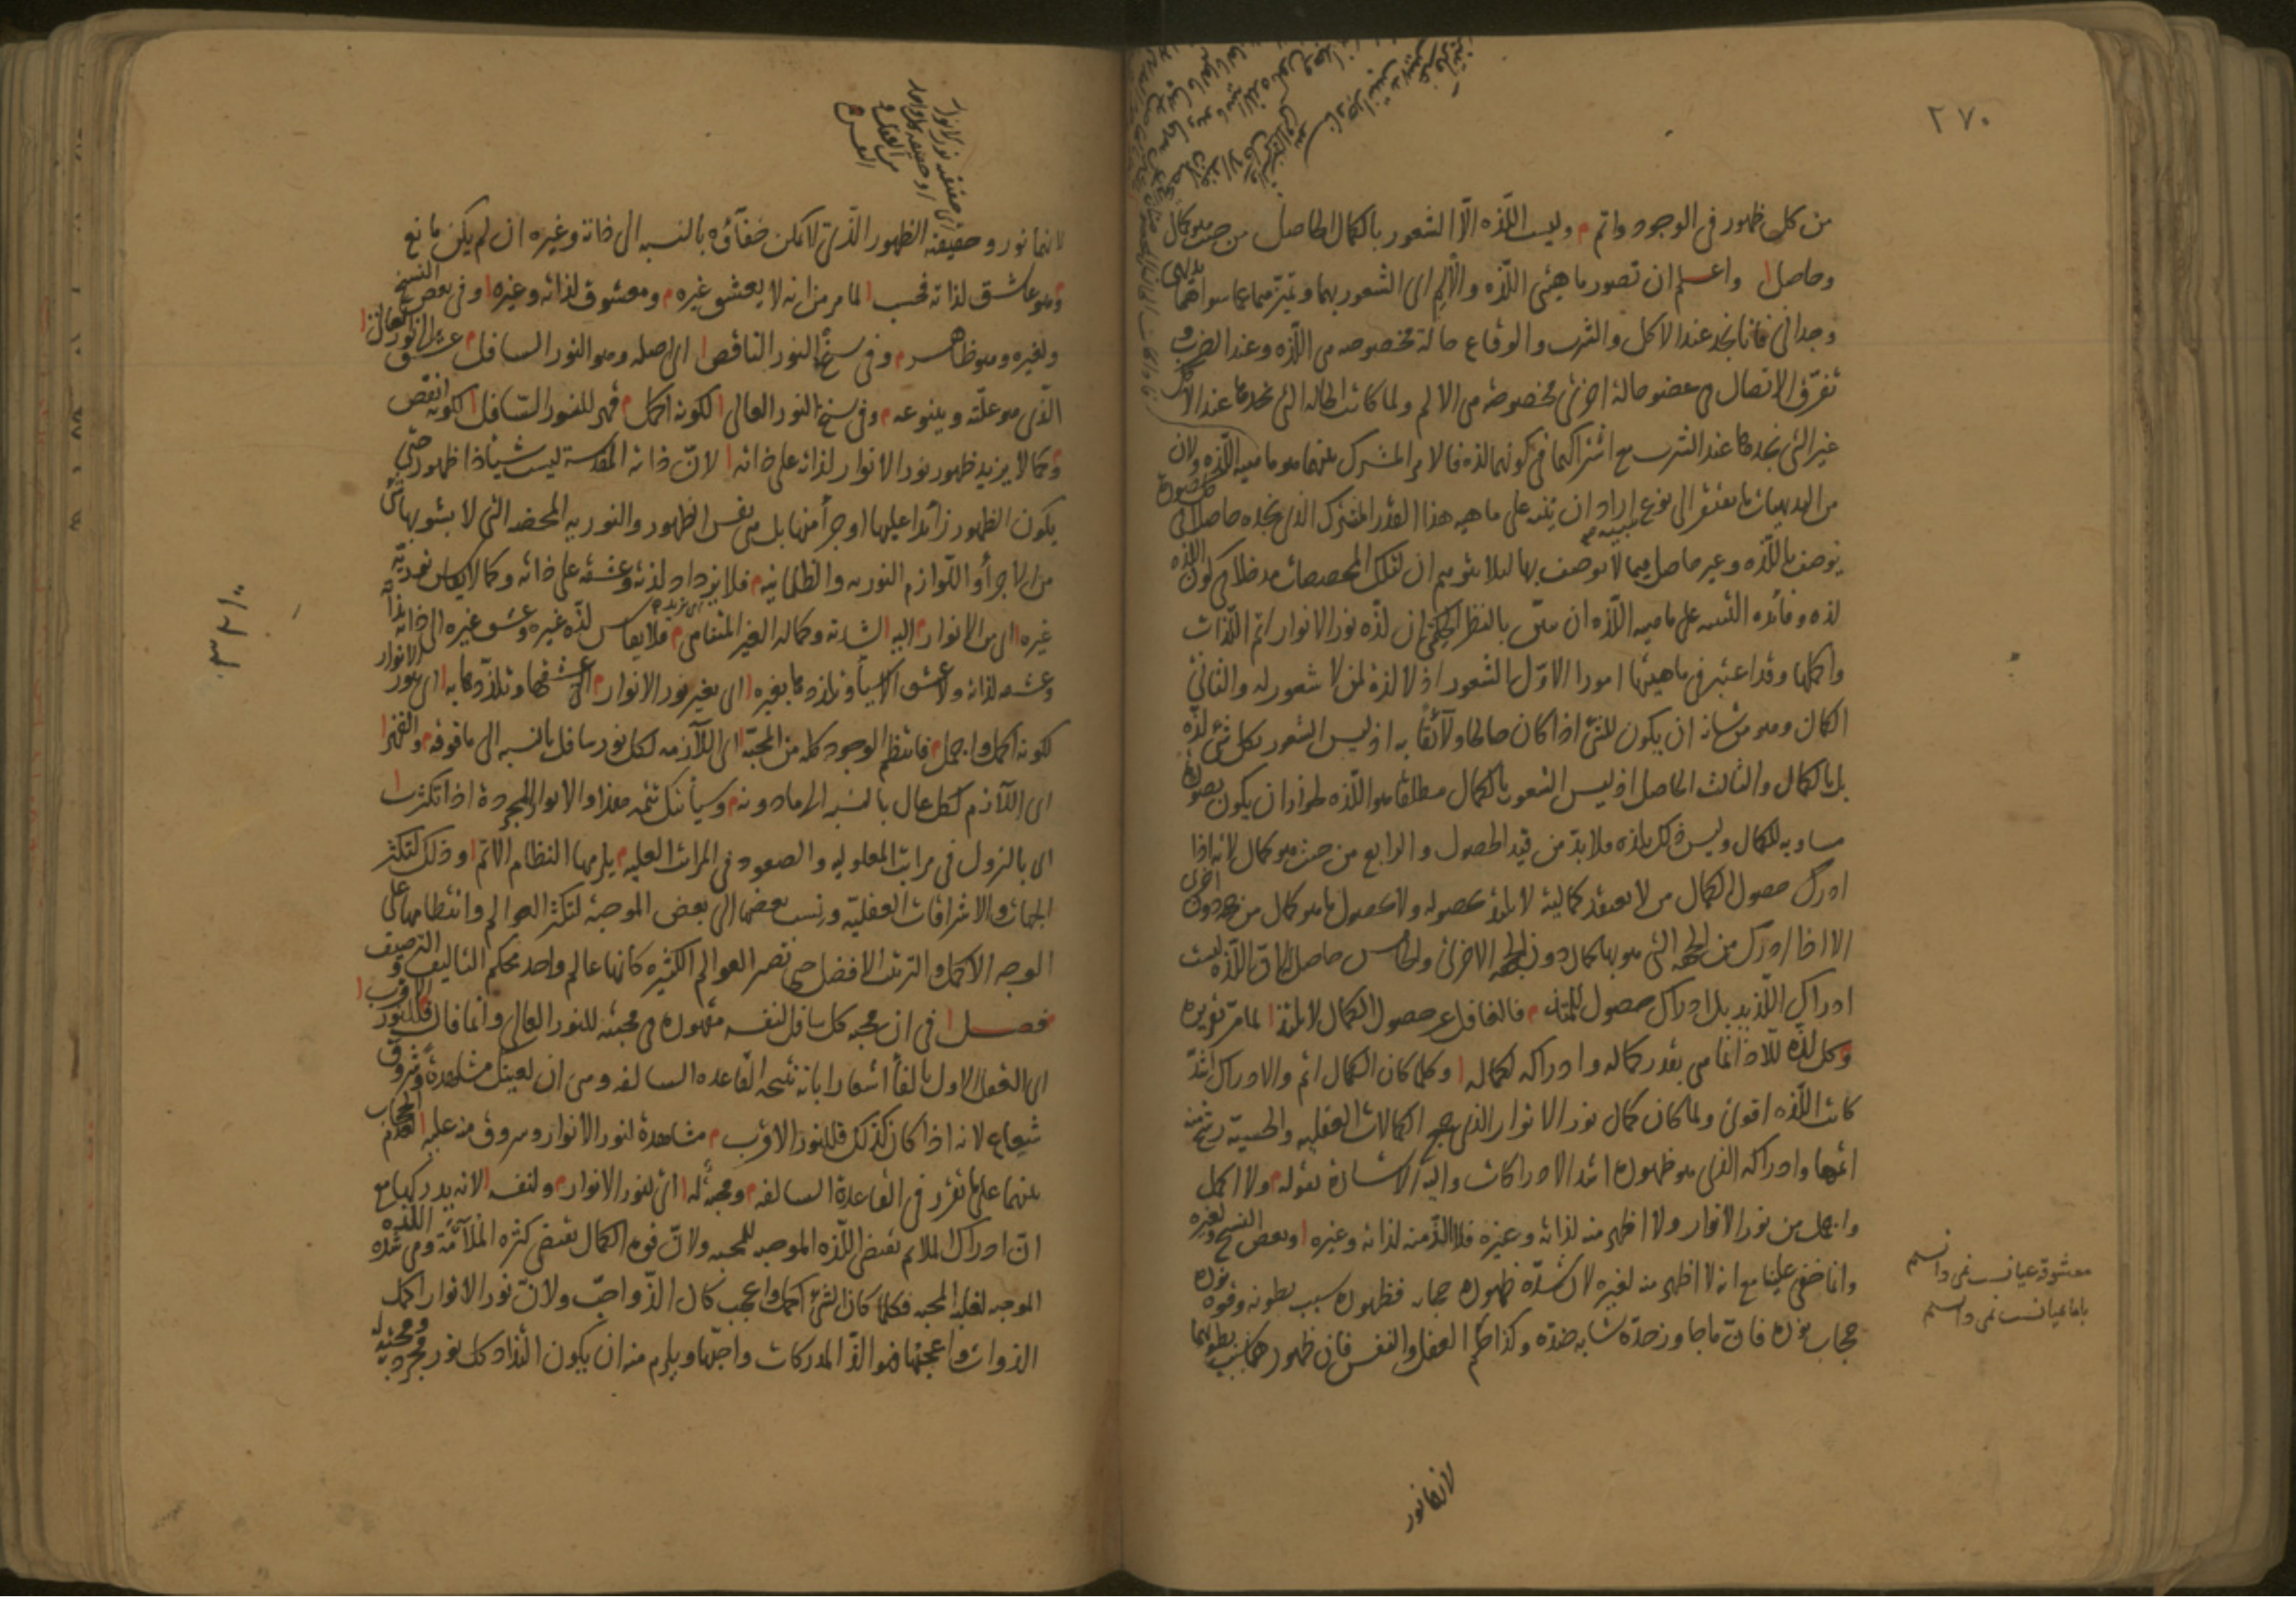 ٢٧٠
من كل ظهور فى الوجود واتم م وليست اللذه الّا الشعور بالكمال الحاصل من حيث هو كمال
وحاصل ا واعلم ان تصور ماهيتى اللذه والألم اى الشعور بهما وتميّزهما عما سواهما بديهى
وجدانى فانا نجد عند الاكل والشرب والوقاع حالة مخصوصه هى اللذه وعند الضرب و
تفرّق الاتصال فى عضو حالة اخرى مخصوصه هى الالم ولما كانت الحاله التى نجدها عند الاكل
غير التى نجدها عند الشرب مع اشتراكهما فى كونهما لذه فالامر المشترك بينهما هو ماهيه اللذه ولان
من البديهيات ما يفتقر الى نوع تنبيه اراد ان ينبه على ماهيه هذا القدر المشترك الذى نجده حاصلا فى كل صورة
توصف باللذه وغير حاصل فيما لا توصف بها لئلا يتوهم ان لتلك المخصصات مدخلا فى كون اللذه
لذه وفائده التنبيه على ماهيه اللذه ان يبيّن بالنظر الحكمى ان لذه نور الانوار اتم اللذات
واكملها وقد اعتبر فى ماهيتها امورا الاوّل الشعور اذ لا لذة لمن لا شعور له والثانى
الكمال وهو من شانه ان يكون للشئ اذا كان صالحا ولآئقاً به اذ ليس الشعور بكل شئ لذّه
بل بالكمال والثالث الحاصل اذ ليس الشعور بالكمال مطلقا هو اللذه لجواز ان يكون بصورة
مساويه للكمال وليس ذلك بلذه فلا بد من قيد الحصول والرابع من حيث هو كمال لانه اذا
ادرك حصول الكمال من لا يعتقد كماليته لا يلتذ بحصوله ولا بحصول ما هو كمال من جهة دون اخرى
الا اذا ادرك من الجهه التى هو بها كمال دون الجهه الاخرى والخامس حاصل لان اللذه ليست
ادراك اللذيذ بل ادراك حصول للملتذ م فالغافل عن حصول الكمال لا يلتذ ا لما مرّ تقريره
وكل لذّه للّاذ انما هى بقدر كماله وادراكه لكماله ا وكلما كان الكمال اتم والادراك اشدّ
كانت اللذه اقوى ولما كان كمال نور الانوار الذى جميع الكمالات العقليه والحسيه رشح منه
اتمها وادراكه الذى هو ظهوره اشد الادراكات واليه الاشارة بقوله م ولا اكمل
واجمل من نور الانوار ولا اظهر منه لذاته وغيره فلا الذّ منه لذاته وغيره ا وبعض النسخ ولغيره
وانما خفى علينا مع انه لا اظهر منه لغيره لان شدّه ظهوره حجابه فظهوره سبب بطونه وقوه نوره
حجاب نوره فان ما جاوز حدّه شابه ضدّه وكذا حكم العقل والنفس فان ظهورهما سبب بطونهما
معشوقه عيانست نمى دانستم
با ما عيانست نمى دانستم
لانها نور
لانها نور وحقيقته الظهور الذى لا يمكن خفآؤه بالنسبه الى ذاته وغيره ان لم يكن مانع
م وهو عاشق لذاته فحسب ا لما مر من انه لا يعشق غيره م ومعشوق لذاته وغيره ا وفى بعض النسخ
ولغيره وهو ظاهر م وفى سنخ النور الناقص ا اى اصله وهو النور السافل م عشق الى النور العالى ا
الذى هو علّته وينبوعه م وفى سنخ النور العالى ا لكونه اكمل م قهر للنور السّافل ا لكونه انقص
م وكما لا يزيد ظهور نور الانوار لذاته على ذاته ا لانّ ذاته المقدسة ليست شيئا ذا ظهور حتى
يكون الظهور زائدا عليها او جزأ منها بل هى نفس الظهور والنوريه المحضه التى لا يشوبها شئ
من الاجزأ واللوازم النوريه والظلمانيه م فلا يزداد لذته وعشقه على ذاته وكما لا يقاس نوريّة
غيره ا اى من الانوار م اليه ا لشدته وكماله الغير المتناهى م فلا يقاس لذّه غيره وعشق غيره الى لذاته
وعشقه لذاته ولا عشق الاشيآء وتلذذها بغيره ا اى بغير نور الانوار م الى عشقها وتلذّذها به ا اى بنور الانوار
لكونه اكمل واجمل م فانتظم الوجود كله من المحبّة ا اى اللآزمه لكل نور سافل بالنسبه الى ما فوقه م والقهر ا
اى اللآزم لكل عال بالنسبه الى ما دونه م وسيأتيك تتمه هذا والانوار المجردة اذا تكثرت ا
اى بالنزول فى مراتب المعلوليه والصعود فى المراتب العليه م يلزمها النظام الاتم ا وذلك لتكثر
الجهات والاشراقات العقليّة ونسب بعضها الى بعض الموجبة لتكثر العوالم وانتظامها على
الوجه الاكمل والترتيب الافضل حتى تصير العوالم الكثيره كانها عالم واحد محكم التاليف و الترصيف
فصل ا فى ان محبه كل سافل لنفسه مقهوره فى محبته للنور العالى وانما قال م فللنور الاقرب ا
اى العقل الاول بالفأ اشعارا بانه نتيجه القاعده السالفه وهى ان لعينك مشاهدة وشروق
شعاع لانه اذا كان كذلك فللنور الاقرب م مشاهدة لنور الانوار وشروق منه عليه ا لعدم الحجاب
بينهما على ما تقرر فى القاعدة السالفه م ومحبّه له ا اى لنور الانوار م ولنفسه ا لانه يدركهما مع
انّ ادراك الملائم يقتضى اللذه الموجبه للمحبه ولانّ قوه الكمال يقتضى كثره الملآئمة وهى شده اللذه
الموجبه لغلبه المحبه فكلما كان الشئ اكمل واعجب كان الذّ واحبّ ولانّ نور الانوار اكمل
الذوات واعجبها فهو الذّ المدركات واحبّها ويلزم منه ان يكون التذاذ كل نور مجرد ومحبته له